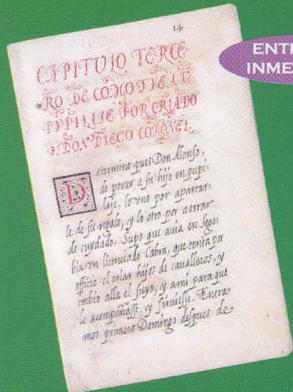 14
ENTR
INMED
CAPITULO TERCE
RO DE COMO FUE A V
PPILAJE POR CRIADO
DON DIEGO CORONEL
Determino pues Don Alonso,
de poner a su hijo en pupi-
laje, lo vno por apartar-
le de su regalo, y lo otro por aorrar
de cuydado. Supo que auia en Sego-
bia vn licenciado Cabra, que tenia por
officio el criar hijos de caualleros, y
imbio alla el suyo, y a mi para que
le acompañasse, y siruiesse. Entra-
mos primero Domingo despues de